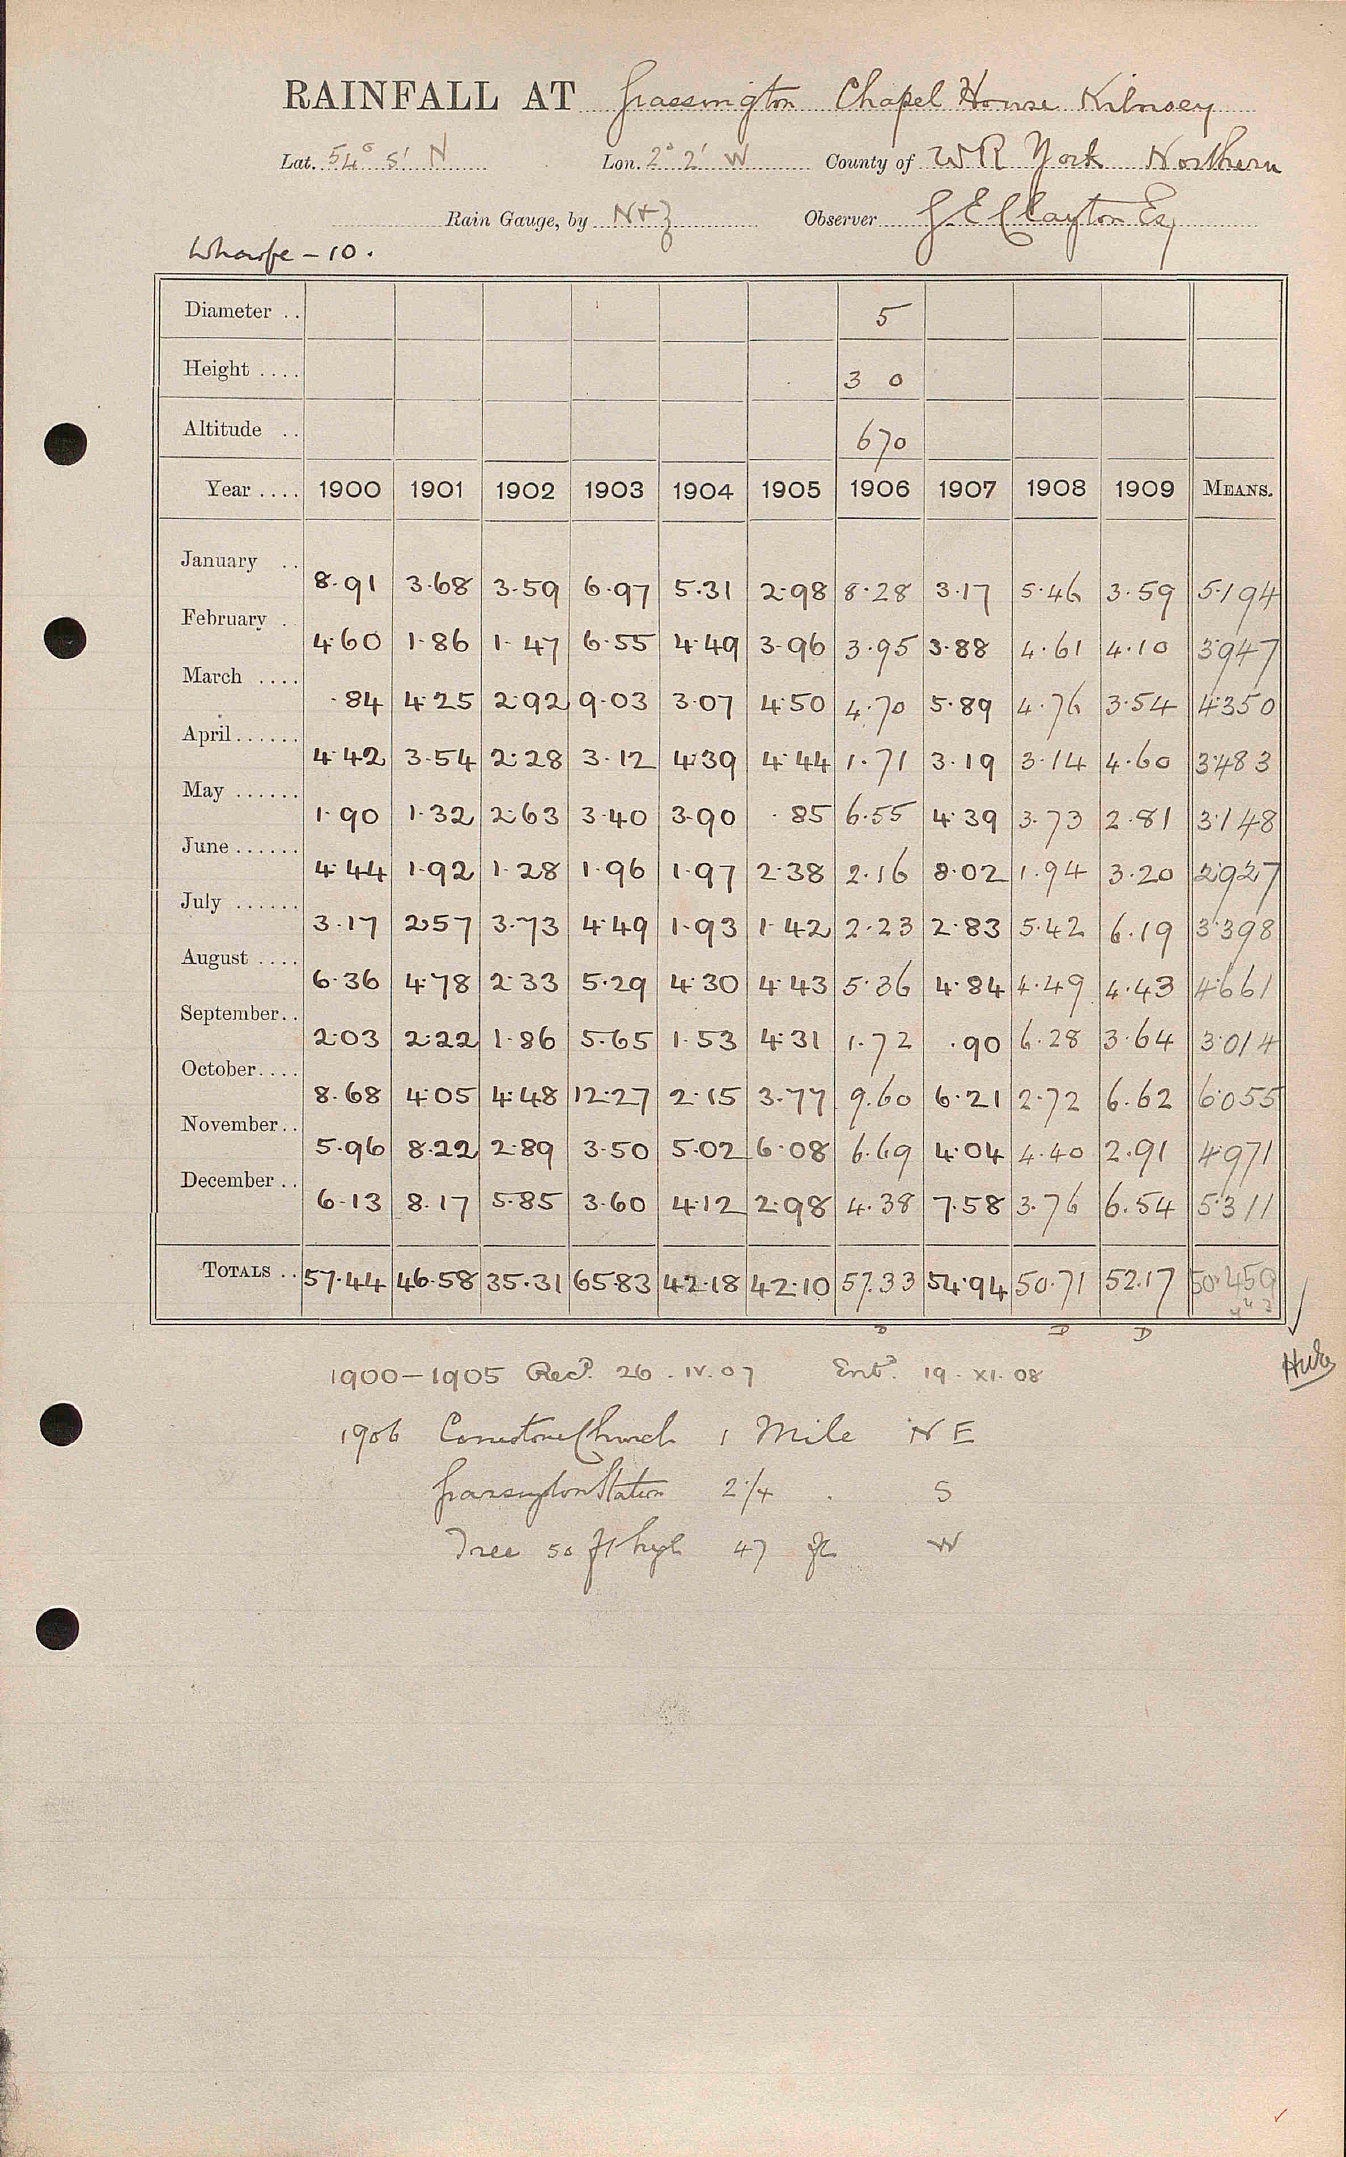 RAINFALL AT Grassington Chapel House Kilnsey
Lat. 54° 5' N Lon. 2° 2' W County of W R York Northern
Rain Gauge, by N+Z Observer G. E Clayton Esq
Wharfe - 10.
Diameter .. 5
Height .... 3 0
Altitude .. 670
Year .... 1900 1901 1902 1903 1904 1905 1906 1907 1908 1909 MEANS.
January .. 8.91 3.68 3.59 6.97 5.31 2.98 8.28 3.17 5.46 3.59 5.194
February . 4.60 1.86 1.47 6.55 4.49 3.96 3.95 3.88 4.61 4.10 3.947
March .... .84 4.25 2.92 9.03 3.07 4.50 4.70 5.89 4.76 3.54 4.350
April...... 4.42 3.54 2.28 3.12 4.39 4.44 1.71 3.19 3.14 4.60 3.483
May ...... 1.90 1.32 2.63 3.40 3.90 .85 6.55 4.39 3.73 2.81 3.148
June ...... 4.44 1.92 1.28 1.96 1.97 2.38 2.16 8.02 1.94 3.20 2.927
July ...... 3.17 2.57 3.73 4.49 1.93 1.42 2.23 2.83 5.42 6.19 3.398
August .... 6.36 4.78 2.33 5.29 4.30 4.43 5.36 4.84 4.49 4.43 4.661
September.. 2.03 2.22 1.86 5.65 1.53 4.31 1.72 .90 6.28 3.64 3.014
October.... 8.68 4.05 4.48 12.27 2.15 3.77 9.60 6.21 2.72 6.62 6.055
November.. 5.96 8.22 2.89 3.50 5.02 6.08 6.69 4.04 4.40 2.91 4.971
December .. 6.13 8.17 5.85 3.60 4.12 2.98 4.38 7.58 3.76 6.54 5.311
TOTALS .. 57.44 46.58 35.31 65.83 42.18 42.10 57.33 54.94 50.71 52.17 50.459
D D D
1900-1905 Recd. 26.IV.07 Entd. 19.XI.08
1906 Conistone Church 1 Mile N E
Grassington Station 2 1/4 . S
Tree 50 ft high 47 ft W